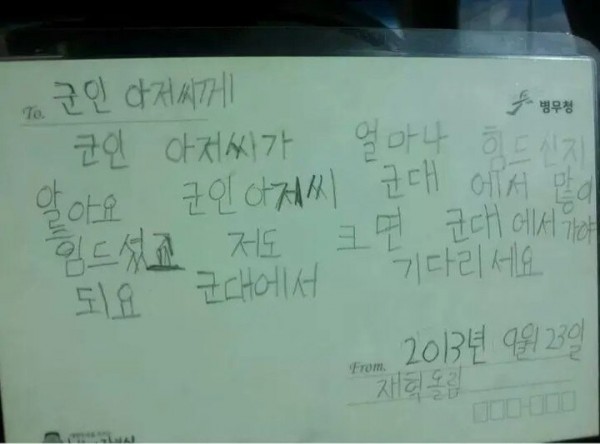 To. 군인 아저씨께
병무청
군인 아저씨가 얼마나 힘드신지
알아요 군인 아저씨 군대에서 많이
힘드셨죠 저도 크면 군대에서 가야
되요 군대에서 기다리세요
2013년 9월 23일
From. 재혁올림